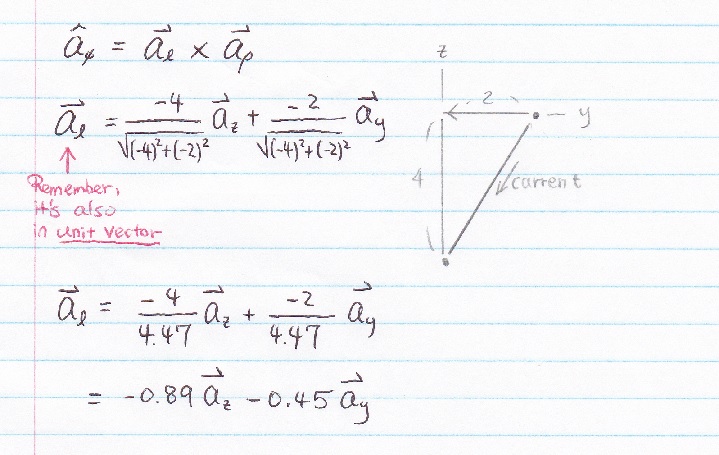 âᵩ = a⃗ₗ × a⃗ᵨ
a⃗ₗ = -4/√((-4)²+(-2)²) a⃗_z + -2/√((-4)²+(-2)²) a⃗_y
Remember,
it's also
in unit vector
z
2
y
4
current
a⃗ₗ = -4/4.47 a⃗_z + -2/4.47 a⃗_y
= -0.89 a⃗_z - 0.45 a⃗_y